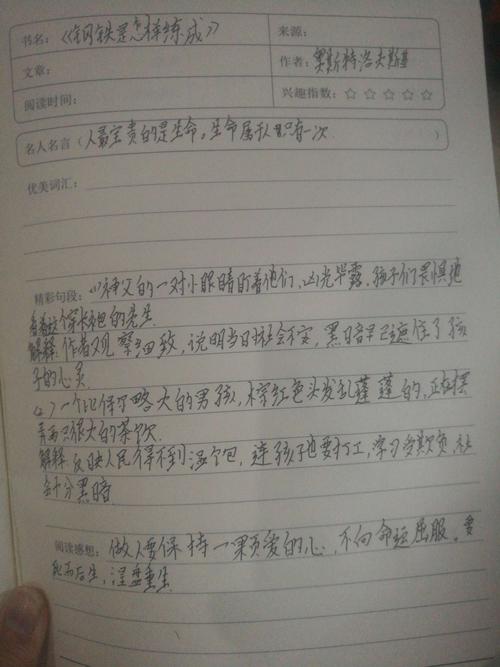 书名：《钢铁是怎样练成》
来源：
文章：
作者：奥斯特洛夫斯基
阅读时间：
兴趣指数：☆ ☆ ☆ ☆ ☆
名人名言（人最宝贵的是生命，生命属于人只有一次 ）
优美词汇：
精彩句段：(1)神父的一对小眼睛盯着他们，凶光毕露，孩子们畏惧地
看着这个穿长袍的先生
解释：作者观察细致，说明当日社会不安，黑暗早已遮住了孩
子的心灵
(2)一个比保尔略大的男孩，棕红色头发乱蓬蓬的，正在摆
弄两只很大的茶饮
解释：反映人民得不到温饱，连孩子也要打工，
会十分黑暗
阅读感想：做人要保持一颗爱的心，不向命运屈服，要
死而后生，涅盘重生